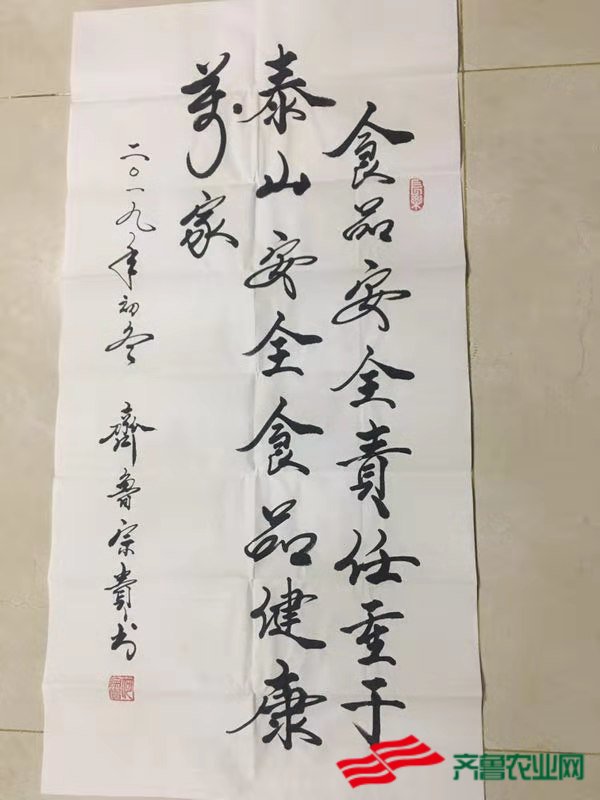 食品安全責任重于
泰山安全食品健康
萬家
二〇一九年初冬 齊魯宗書
齐鲁农业网